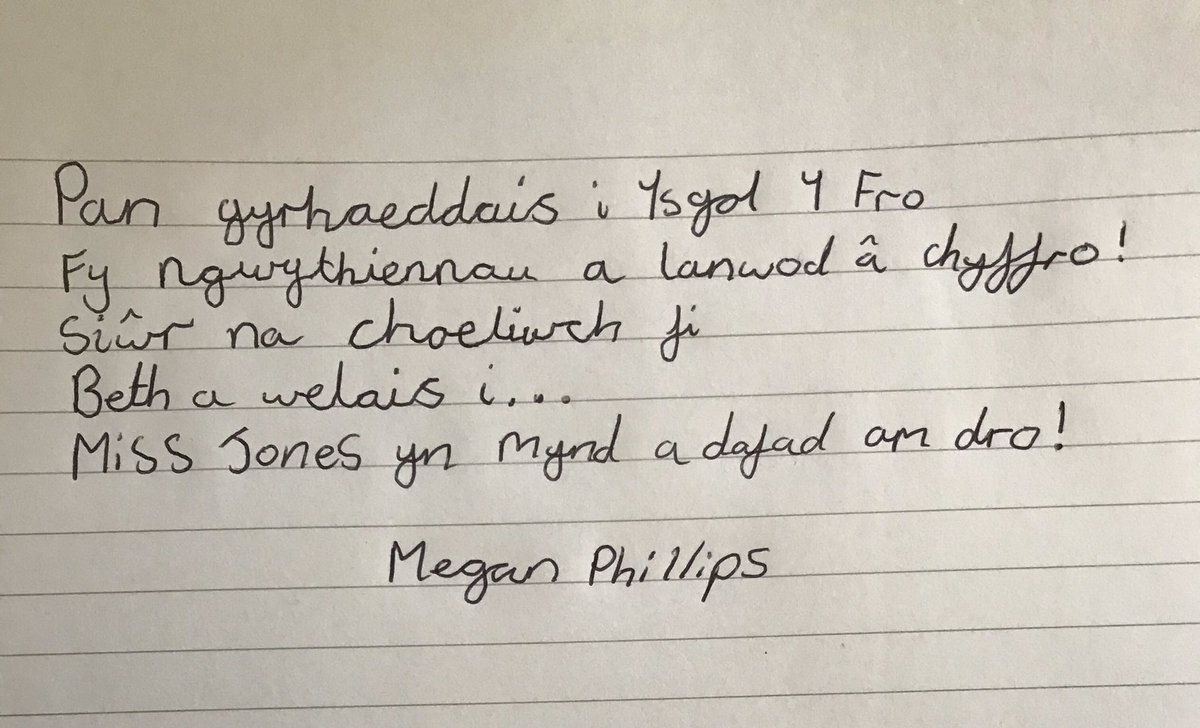 Pan gyrhaeddais i Ysgol Y Fro
Fy ngwythiennau a lanwod â chyffro!
Siŵr na choeliwch fi
Beth a welais i...
Miss Jones yn mynd a dafad am dro!
Megan Phillips